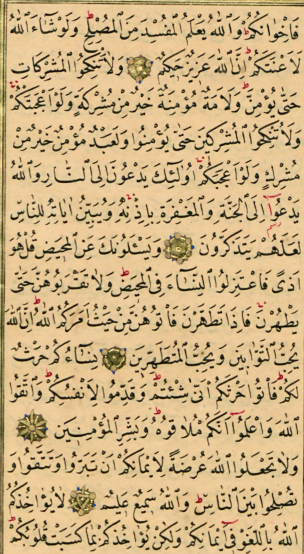 فَاِخْوَانُكُمْ وَاللّٰهُ يَعْلَمُ الْمُفْسِدَ مِنَ الْمُصْلِحِ وَلَوْ شَٓاءَ اللّٰهُ
لَاَعْنَتَكُمْ اِنَّ اللّٰهَ عَزِيزٌ حَكِيمٌ وَلَا تَنْكِحُوا الْمُشْرِكَاتِ
حَتّٰى يُؤْمِنَّ وَلَاَمَةٌ مُؤْمِنَةٌ خَيْرٌ مِنْ مُشْرِكَةٍ وَلَوْ اَعْجَبَتْكُمْ
وَلَا تُنْكِحُوا الْمُشْرِكِينَ حَتّٰى يُؤْمِنُوا وَلَعَبْدٌ مُؤْمِنٌ خَيْرٌ مِنْ
مُشْرِكٍ وَلَوْ اَعْجَبَكُمْ اُولٰٓئِكَ يَدْعُونَ اِلَى النَّارِ وَاللّٰهُ
يَدْعُٓوا اِلَى الْجَنَّةِ وَالْمَغْفِرَةِ بِاِذْنِهٖ وَيُبَيِّنُ اٰيَاتِهٖ لِلنَّاسِ
لَعَلَّهُمْ يَتَذَكَّرُونَ وَيَسْـَٔلُونَكَ عَنِ الْمَحِيضِ قُلْ هُوَ
اَذًى فَاعْتَزِلُوا النِّسَٓاءَ فِي الْمَحِيضِ وَلَا تَقْرَبُوهُنَّ حَتّٰى
يَطْهُرْنَ فَاِذَا تَطَهَّرْنَ فَأْتُوهُنَّ مِنْ حَيْثُ اَمَرَكُمُ اللّٰهُ اِنَّ اللّٰهَ
يُحِبُّ التَّوَّابِينَ وَيُحِبُّ الْمُتَطَهِّرِينَ نِسَٓاؤُكُمْ حَرْثٌ
لَكُمْ فَأْتُوا حَرْثَكُمْ اَنّٰى شِئْتُمْ وَقَدِّمُوا لِاَنْفُسِكُمْ وَاتَّقُوا
اللّٰهَ وَاعْلَمُٓوا اَنَّكُمْ مُلَاقُوهُ وَبَشِّرِ الْمُؤْمِنِينَ
وَلَا تَجْعَلُوا اللّٰهَ عُرْضَةً لِاَيْمَانِكُمْ اَنْ تَبَرُّوا وَتَتَّقُوا وَ
تُصْلِحُوا بَيْنَ النَّاسِ وَاللّٰهُ سَمِيعٌ عَلِيمٌ لَا يُؤَاخِذُكُمُ
اللّٰهُ بِاللَّغْوِ فٓى اَيْمَانِكُمْ وَلٰكِنْ يُؤَاخِذُكُمْ بِمَا كَسَبَتْ قُلُوبُكُمْ